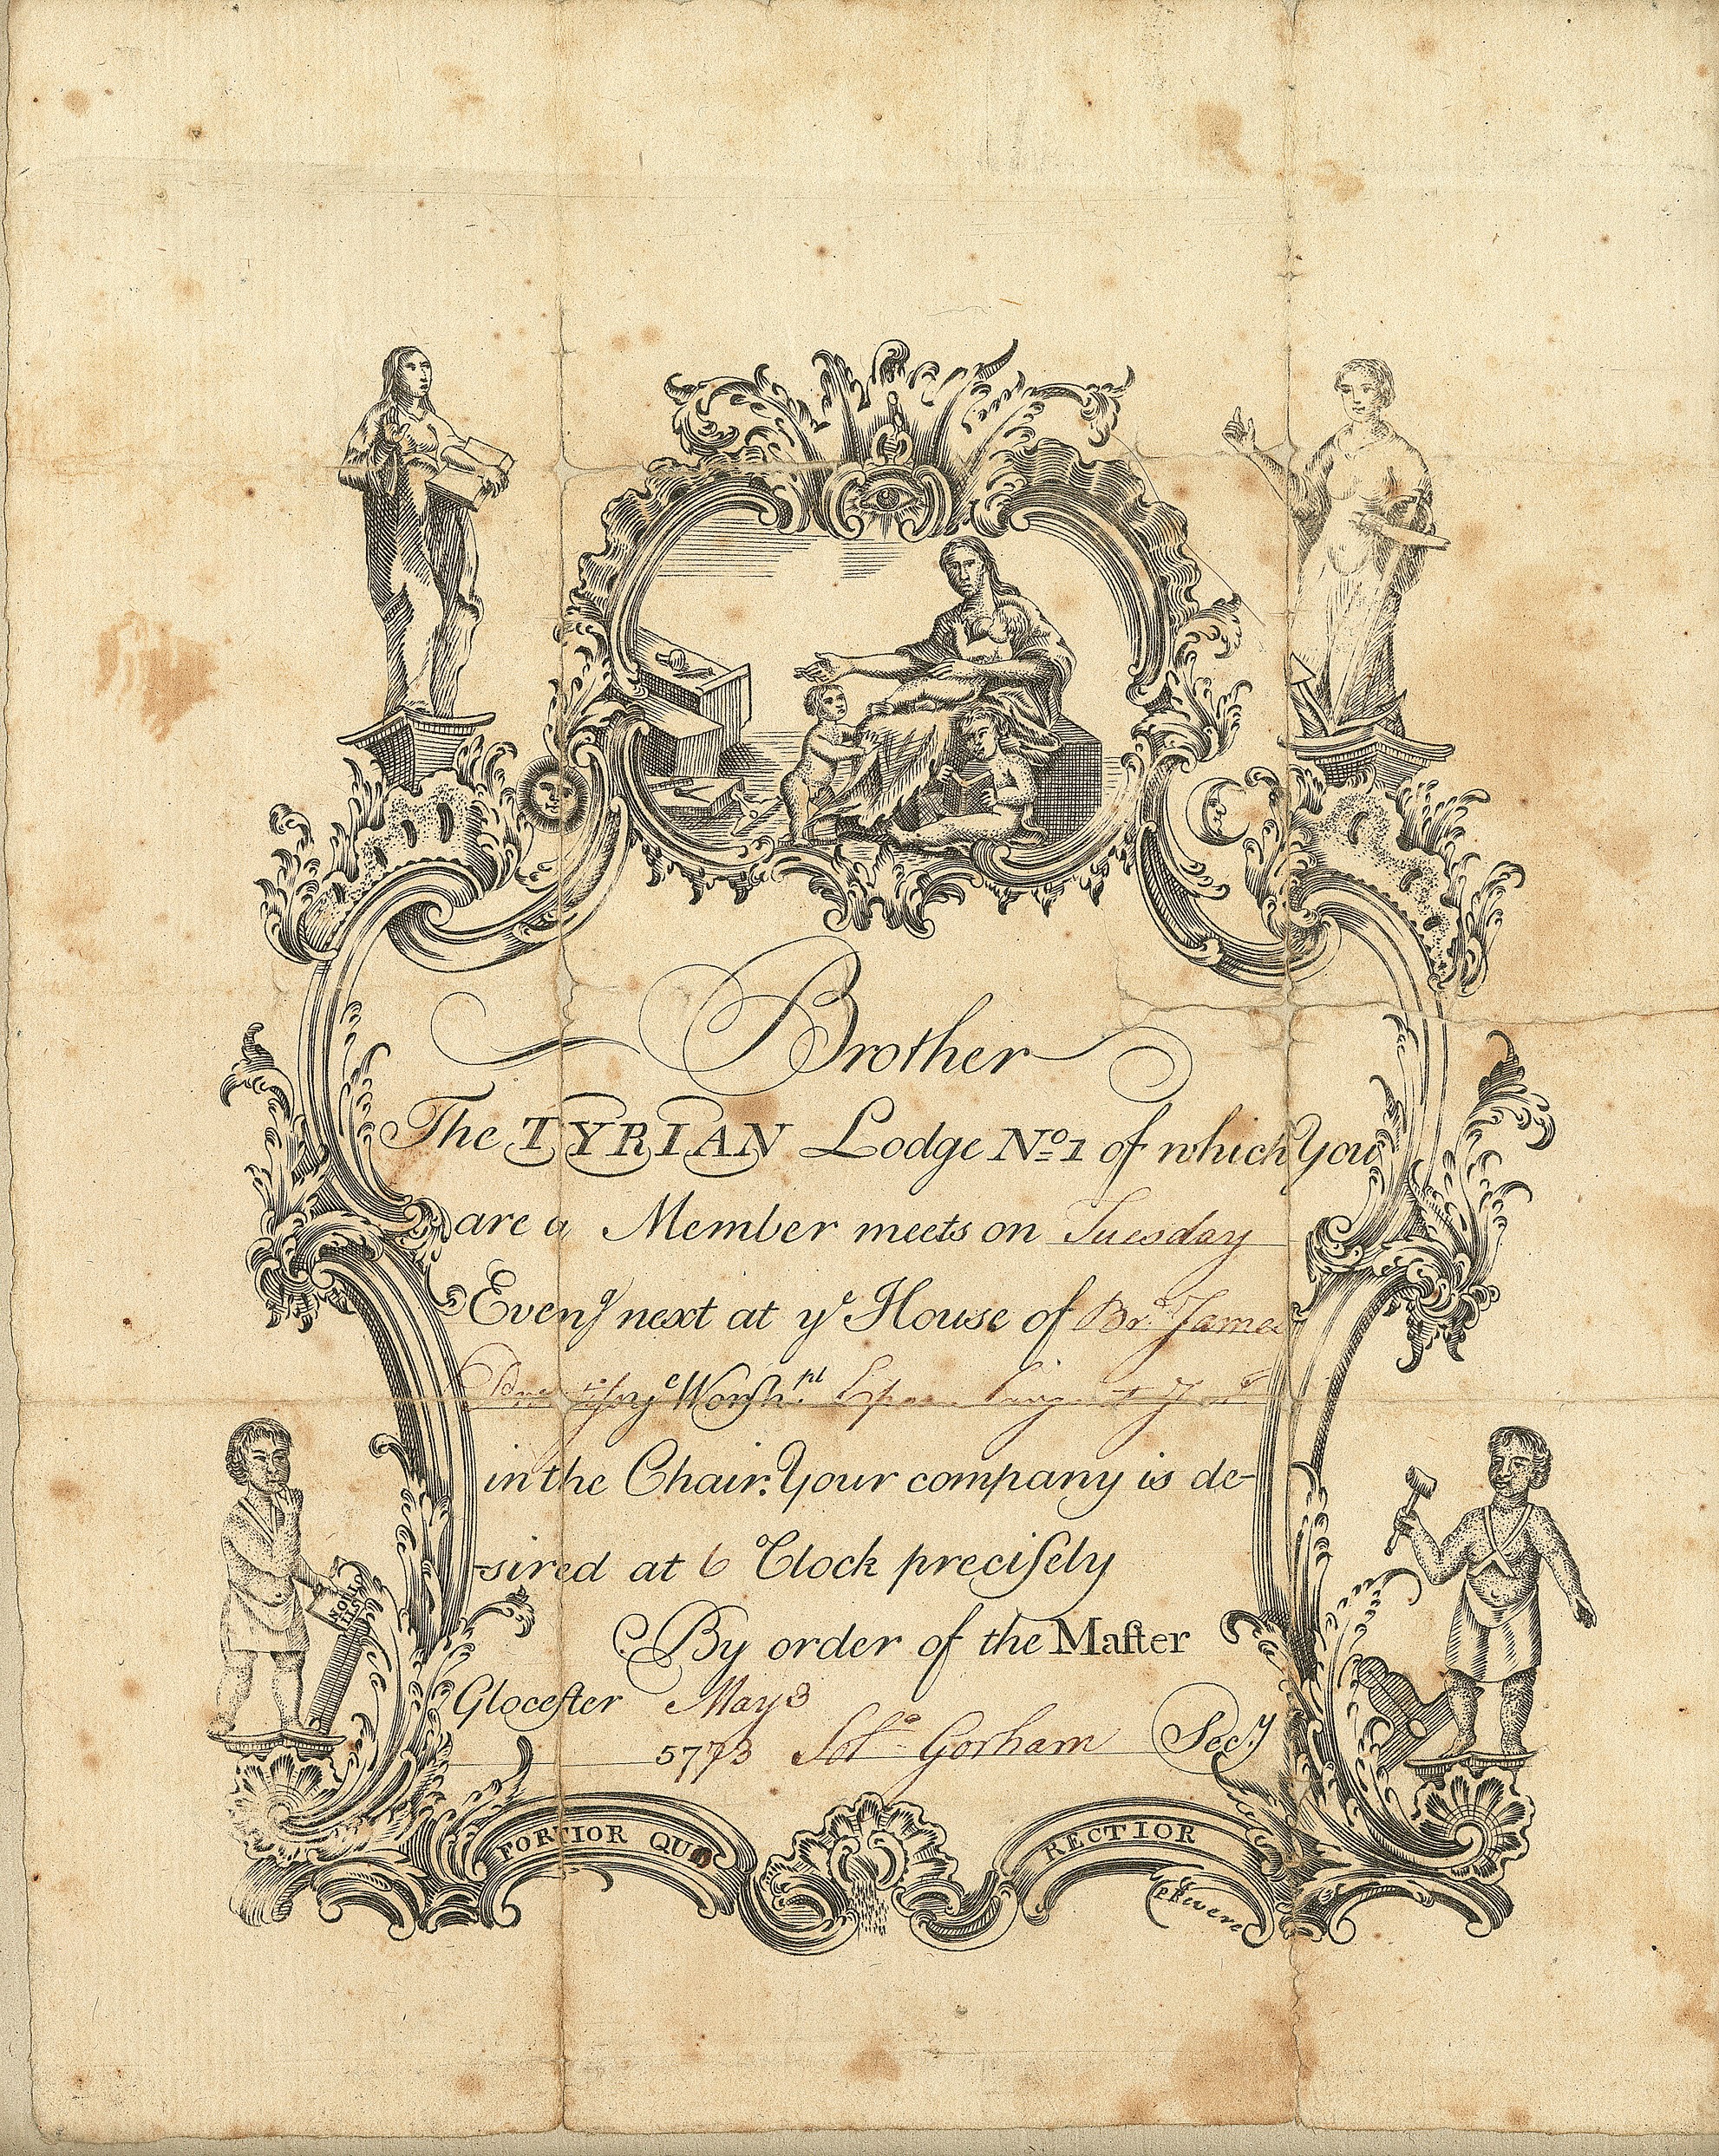 Brother
The TYRIAN Lodge No. 1 of which You
are a Member meets on Tuesday
Eveng next at ye House of Br. James
ye Worshpl
in the Chair. Your company is de-
-sired at 6 Clock preciſely
By order of the Maſter
Gloceſter May 3
5773 Solo. Gorham Secy
FORTIOR QUO RECTIOR
P Revere